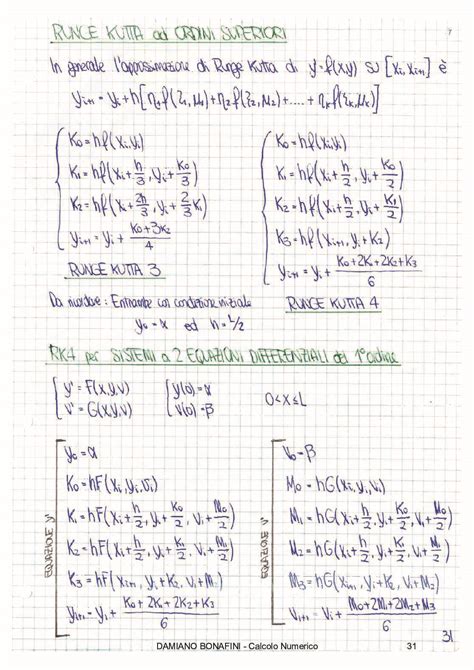 RUNGE KUTTA ad ORDINI SUPERIORI
In generale l'approssimazione di Runge Kutta di y'=f(x,y) su [xi, xi+1] è
yi+1 = yi + h[η1f(ξ1,μ1)+η2f(ξ2,μ2)+....+ηkf(ξk,μk)]
K0=hf(xi,yi)
K1=hf(xi+h/3, yi+K0/3)
K2=hf(xi+2h/3, yi+2/3K1)
yi+1=yi+(K0+3K2)/4
RUNGE KUTTA 3
K0=hf(xi,yi)
K1=hf(xi+h/2, yi+K0/2)
K2=hf(xi+h/2, yi+K1/2)
K3=hf(xi+1, yi+K2)
yi+1=yi+(K0+2K1+2K2+K3)/6
RUNGE KUTTA 4
Da ricordare: Entrambe con condizione iniziale
y0=α ed h=1/2
RK4 per SISTEMI a 2 EQUAZIONI DIFFERENZIALI del 1°ordine
y'=F(x,y,v) y(0)=α
v'=G(x,y,v) v(0)=β
0<x≤L
EQUAZIONE y
y0=α
K0=hF(xi,yi,vi)
K1=hF(xi+h/2, yi+K0/2, vi+M0/2)
K2=hF(xi+h/2, yi+K1/2, vi+M1/2)
K3=hF(xi+1, yi+K2, vi+M2)
yi+1=yi+(K0+2K1+2K2+K3)/6
EQUAZIONE v
v0=β
M0=hG(xi,yi,vi)
M1=hG(xi+h/2, yi+K0/2, vi+M0/2)
M2=hG(xi+h/2, yi+K1/2, vi+M1/2)
M3=hG(xi+1, yi+K2, vi+M2)
vi+1=vi+(M0+2M1+2M2+M3)/6
31
DAMIANO BONAFINI - Calcolo Numerico 31